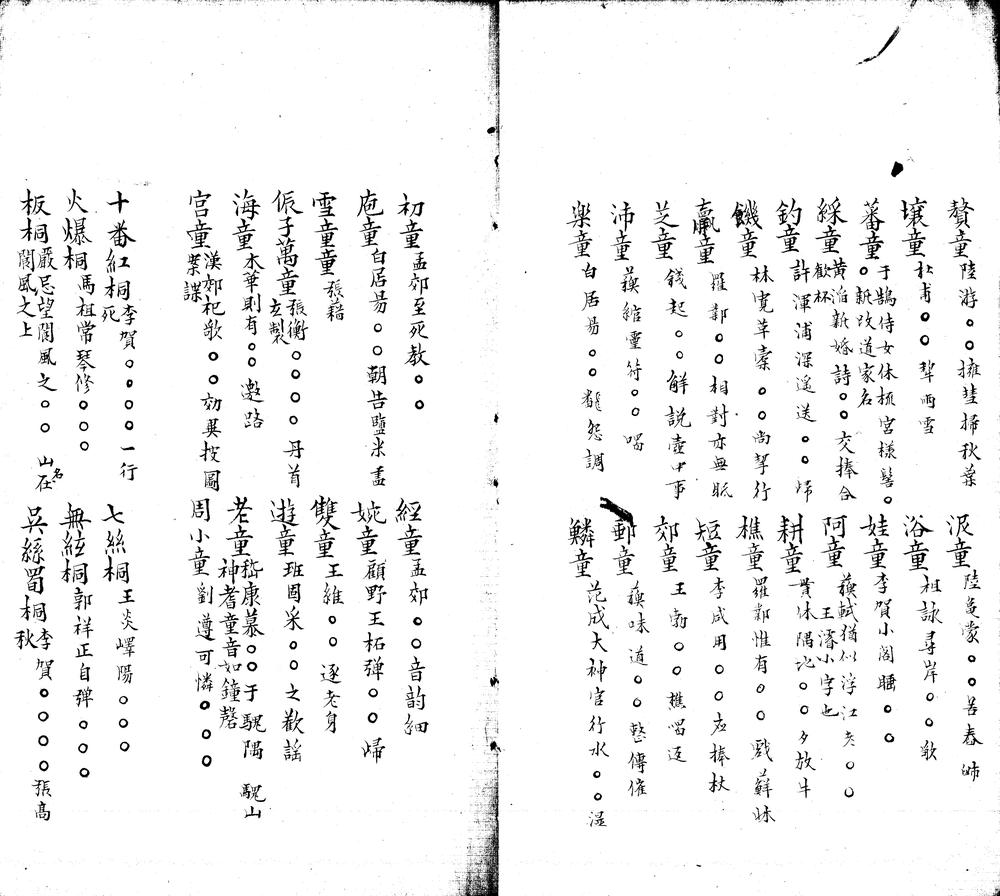 贅童 陸游○○擁彗掃秋葉
壤童 杜甫○○犂雨雪
蕃童 于鵠侍女休梳宮樣髻○○新改道家名
綵童 黄滔新婚詩○○交捧合歡杯
釣童 許渾浦深遥送○○歸
饑童 林寬草○○尚挈行
羸童 羅鄴○○相對亦無眠
芝童 錢起○○解説壺中事
沛童 蘓綰靈符○○唱
樂童 白居易○○翻怨調
泯童 陸龜蒙○○苦春
浴童 祖詠尋岸○○歌
娃童 李賀小閣睡○○
阿童 蘓軾猶似浮江老○○ 王濬小字也
耕童 貫休隅○○夕放牛
樵童 羅鄴惟有○○戲蘚牀
短童 李咸用○○應捧杖
郊童 王勃○○樵唱返
郵童 蘓味道○○整傳催
鱗童 范成大神宮行水○○溼
初童 孟郊至死教○○
庖童 白居易○○朝告鹽米盡
雪童童 張籍
侲子萬童 張衡○○○○丹首玄製
海童 木華則有○○邀路
宫童 漢郊祀歌○○効異披圖案諜
經童 孟郊○○音韵細
婉童 顧野王柘彈○○歸
雙童 王維○○逐老身
遊童 班固采○○之歡謡
老童 嵇康慕○○于騩隅 騩山神耆童音如鐘磬
周小童 劉遵可憐○○○
十番紅桐 李賀○○○○一行死
火爆桐 馬祖常琴修○○○
板桐 嚴忌望閬風之○○ 山名在閬風之上
七絲桐 王炎嶧陽○○○
無絃桐 郭祥正自彈○○○
吳絲蜀桐 李賀○○○○張高秋